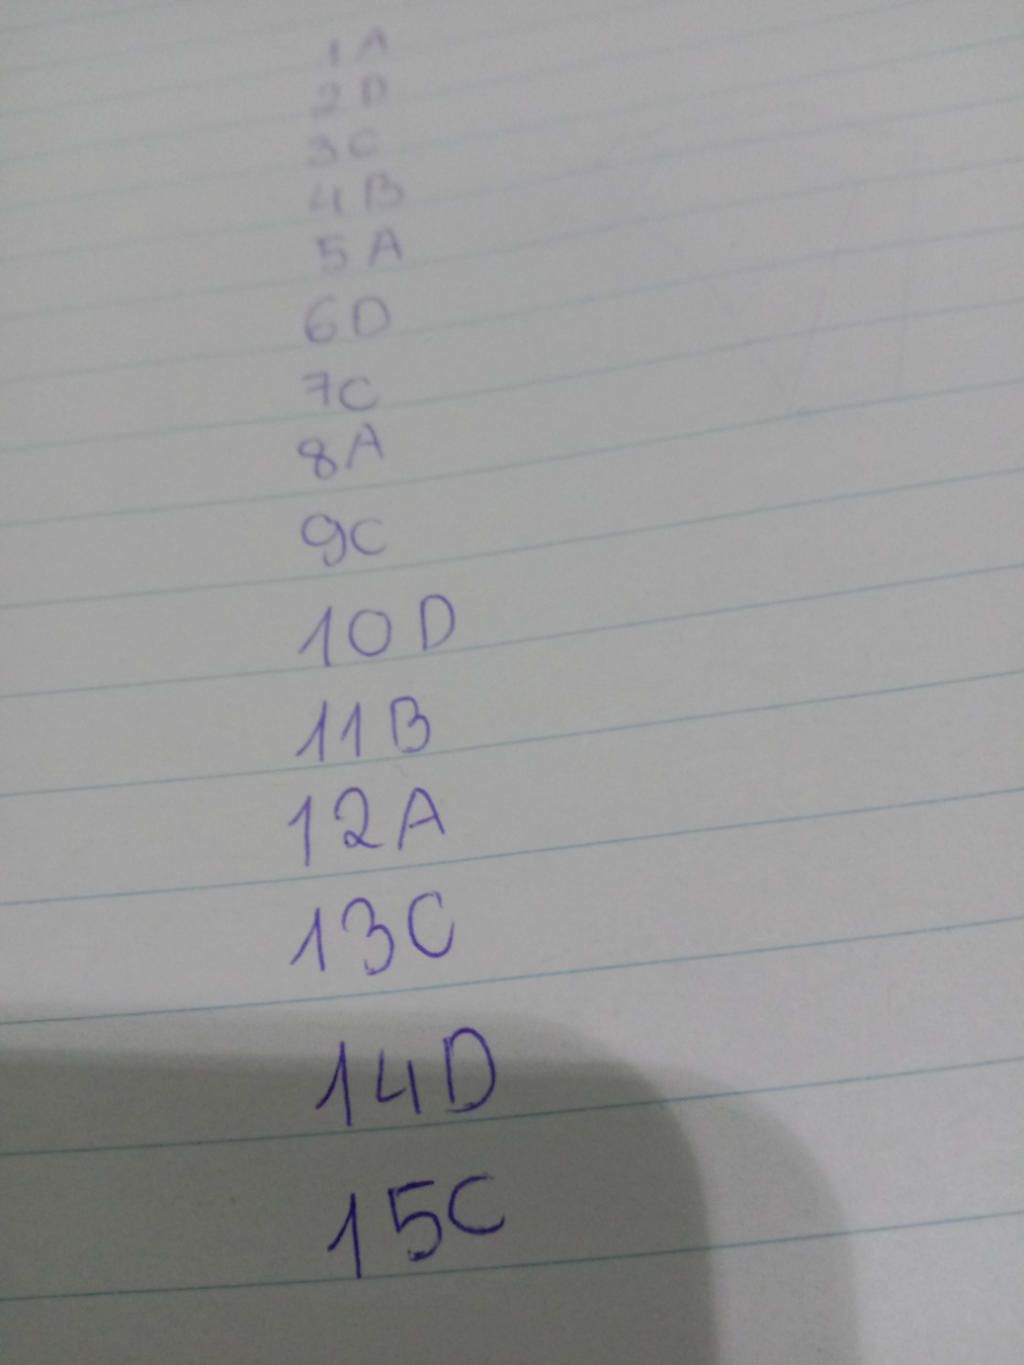 1 A
2 D
3 C
4 B
5 A
6 D
7 C
8 A
9 C
10 D
11 B
12 A
13 C
14 D
15 C